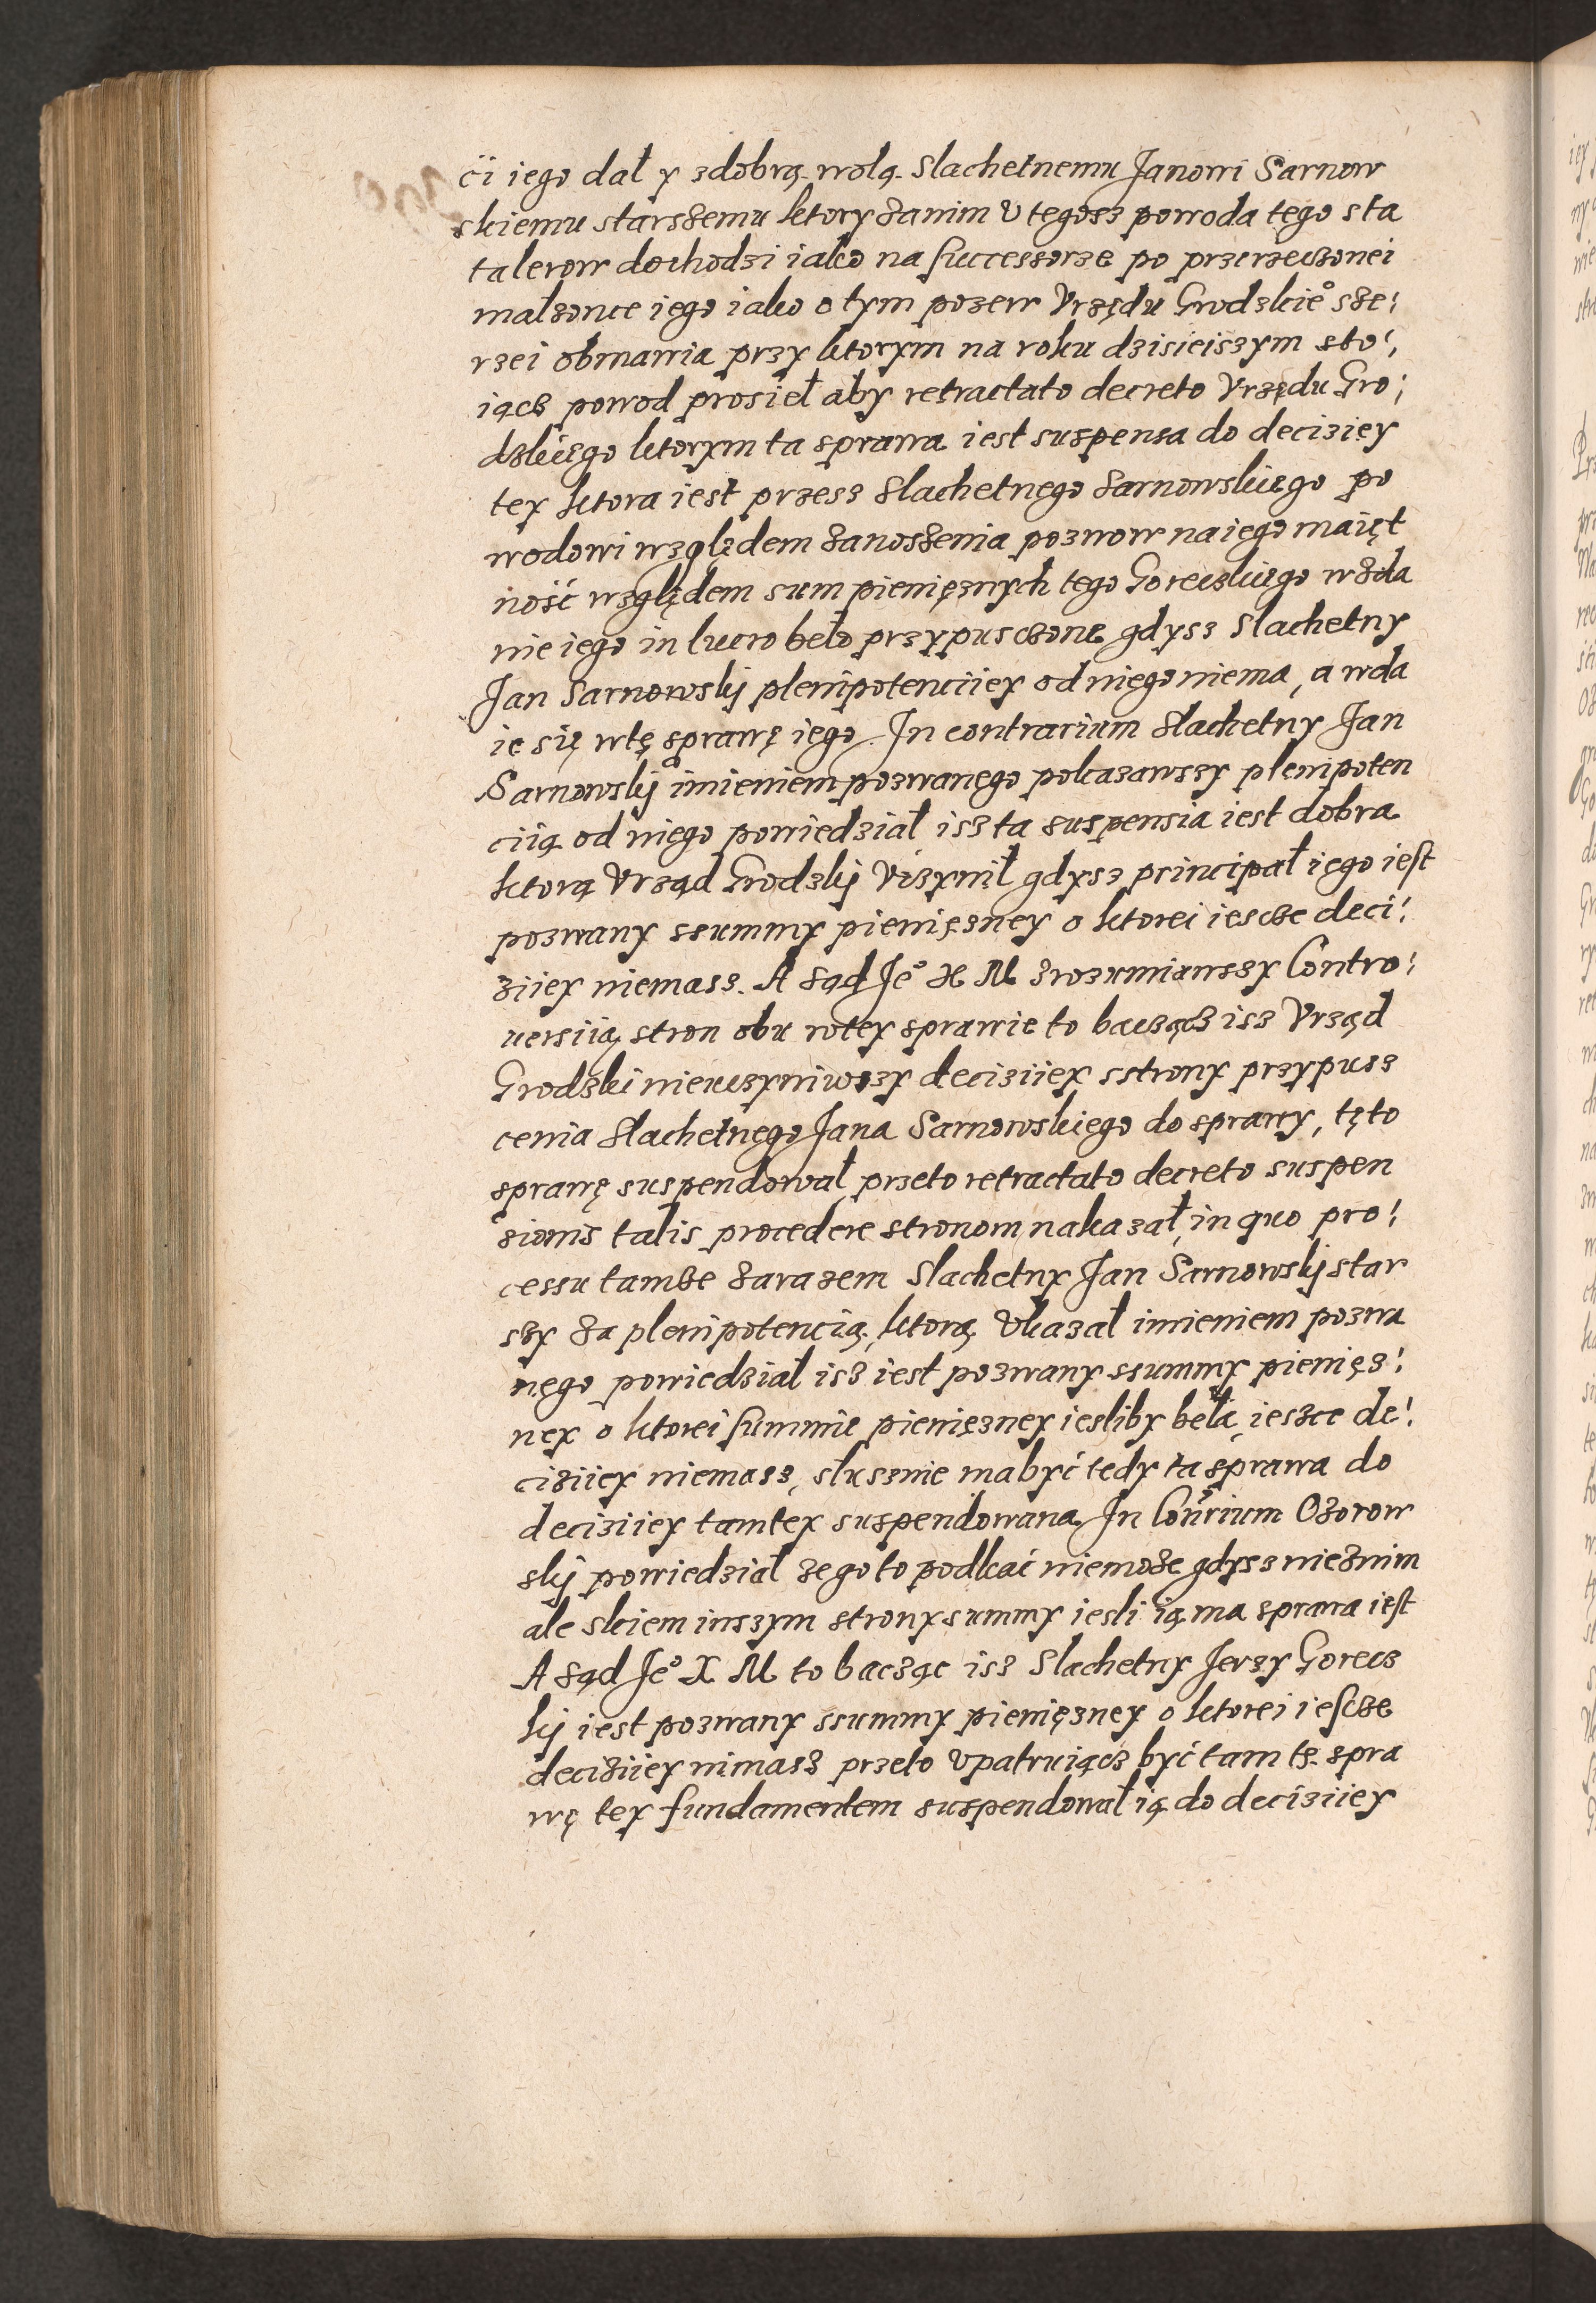 ći iego dał y zdobrą wolą Slachetnemu Janowi Sarnow
skiemu starszemu ktory zanim v tegosz powoda tego sta
talerow dochodzi iako na successorze po przerzeczonei
małzonce iego iako o tym pozew Vrzędu Grodzkie° sze:
rzei obmawia przy ktorym na roku dzisieiszym sto:
iącz powod prosieł aby retractato decreto Vrzędu Gro:
dzkiego ktorym ta sprawa iest suspensa do deciziey
tey ktora iest przesz slachetnego Sarnowskiego po
wodowi względem zanoszenia pozwow na iego maięt
ność względem sum pienięznych tego Goreczkiego w zda
nie iego in lucro beło przypusczone gdysz Slachetny
Jan Sarnowskij plenipotenciiey od niego niema, a wda
ie się wtę sprawę iego. In contrarium slachetny Jan
Sarnowskij imieniem pozwanego pokazawszy plenipoten
ciią od niego powiedział isz ta suspensia iest dobra
ktorą Vrząd Grodzkij Vizynił gdysz principał iego iest
pozwany ssummy pienięzney o ktorei iescze deci:
ziiey niemasz. A sąd Je° X M zrozumiawszy Contro:
uersiią stron obu wtey sprawie to baczącz isz Vrząd
Grodzki nieuczyniwszy deciziiey sstrony przypusz
cenia slachetnego Jana Sarnowskiego do sprawy, tęto
sprawę suspendował przeto retractato decreto suspen
sionis talis procedere stronom nakazał, in quo pro:
cessu tamze zarazem Slachetny Jan Sarnowskij star
szy za plenipotencią, ktorą Vkazał imieniem pozwa
nego powiedział isz iest pozwany ssummy pienięz:
ney o ktorei summie pienięzney iesliby beła ieszce de:
ciziiey niemasz, słusznie ma być tedy ta sprawa do
deciziiey tamtey suspendowana. In Con̄rium Ozorow
skij powiedział ze go to podkać niemoze gdysz nieznim
ale skiem inszym strony summy iesli ią ma sprawa iest
A sąd Je° X M to bacząc isz Slachetny Jerzy Gorecz
kij iest pozwany ssummy pienięzney o ktorei iescze
deciziiey nimasz przeto vpatruiącz być tam tę spra
wę tey fundamentem suspendował ią do deciziiey